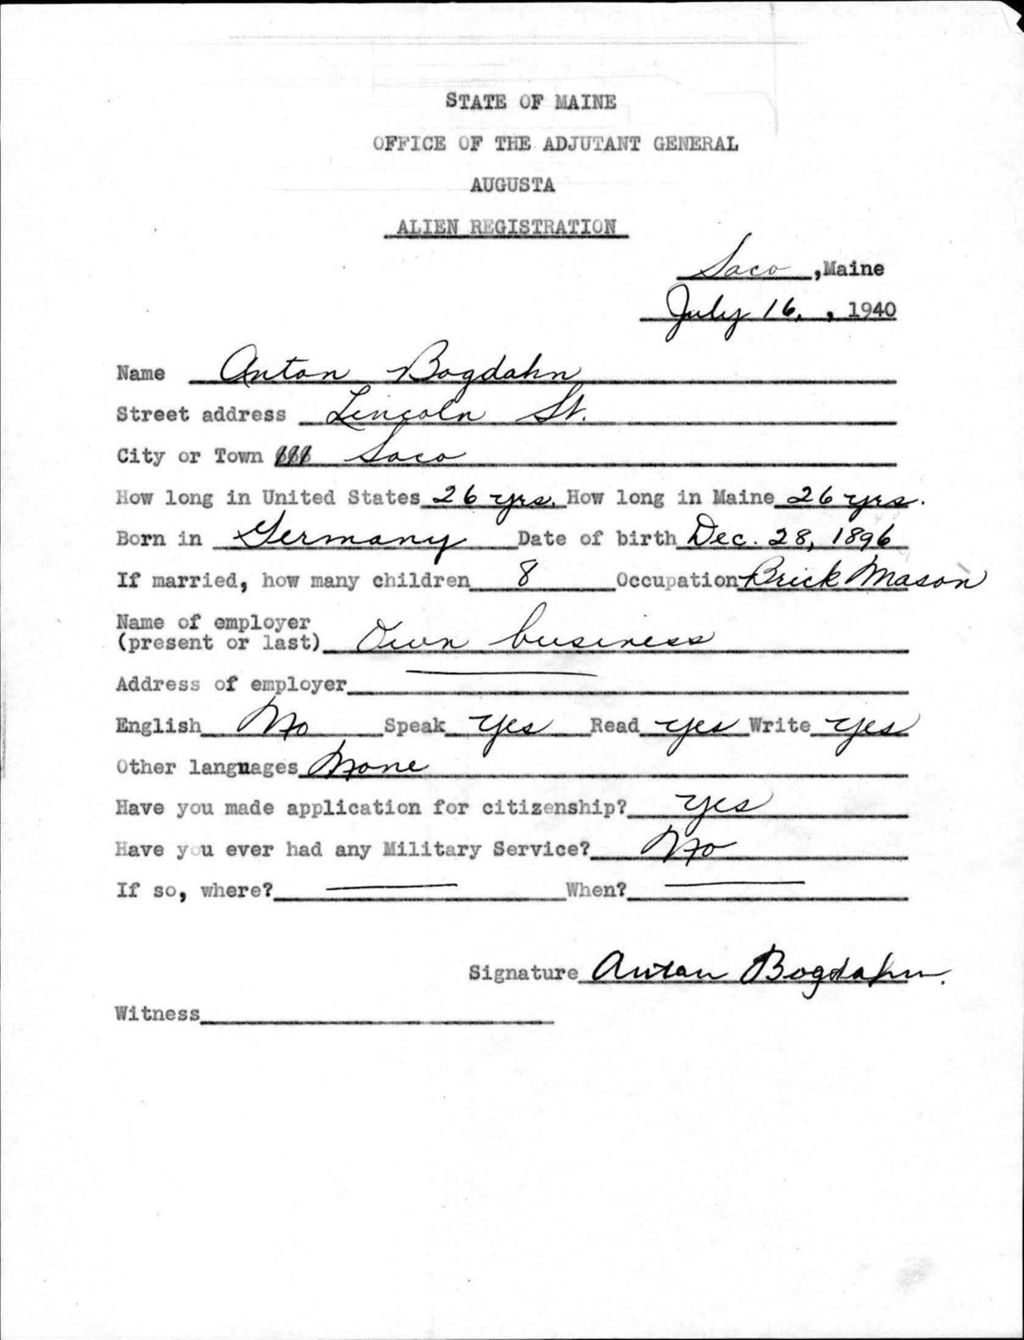 STATE OF MAINE
OFFICE OF THE ADJUTANT GENERAL
AUGUSTA
ALIEN REGISTRATION
Saco, Maine
July 16, , 1940
Name Anton Bogdahn
Street address Lincoln St.
City or Town Saco
How long in United States 26 yrs. How long in Maine 26 yrs.
Born in Germany Date of birth Dec. 28, 1896
If married, how many children 8 Occupation Brick Mason
Name of employer
(present or last) Own business
Address of employer
English No Speak Yes Read Yes Write Yes
Other languages None
Have you made application for citizenship? Yes
Have you ever had any Military Service? No
If so, where? When?
Signature Anton Bogdahn.
Witness